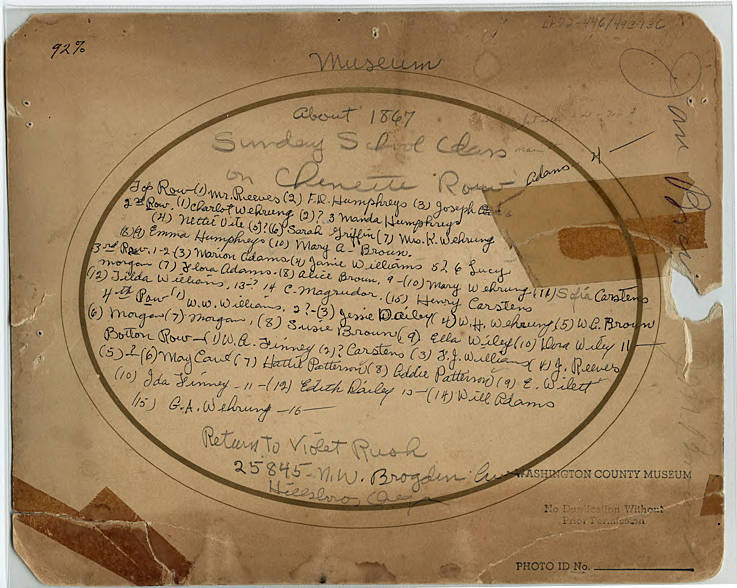 92%
Museum
About 1867
Sunday School Class
on Chenette Row
Adams - 4
Top Row (1) Mr. Reeves (2) F.R. Humphreys (3) Joseph
2nd Row. (1) Charlot Wehrung (2)? 3 Manda Humphreys
(4) Nettie Vite (5)? (6) Sarah Griffin (7) Mrs. K. Wehrung
(8)(9) Emma Humphreys (10) Mary A. Brown.
3rd Row. 1-2-(3) Marion Adams (4) Janie Williams 5 & 6 Lucy
Morgan (7) Flora Adams. (8) Alice Brown, 9-(10) Mary Wehrung (11) Sofia Carstens
(12) Tilda Williams, 13-? 14 C. Magrudor. (15) Henry Carstens
4-th Row (1) W.W. Williams, 2?-(3) Jessie Dailey (4) W.H. Wehrung (5) W.C. Brown
(6) Morgan (7) Morgan, (8) Susie Brown (9) Ella Wiley (10) Dora Wiley 11-
Bottom Row-(1) W.A. Finney (2)? Carstens (3) F.J. Williams (4) J. Reeves
(5)-? (6) May Cave (7) Hattie Patterson (8) Eddie Patterson (9) E. Wilett
(10) Ida Finney - 11-(12) Edith Dailey 13-(14) Will Adams
(15) G.A. Wehrung -16-
Return to Violet Rush
25845-N.W. Brogden
Hillsboro, Oreg
WASHINGTON COUNTY MUSEUM
No Duplication Without
Prior Permission
PHOTO ID No.